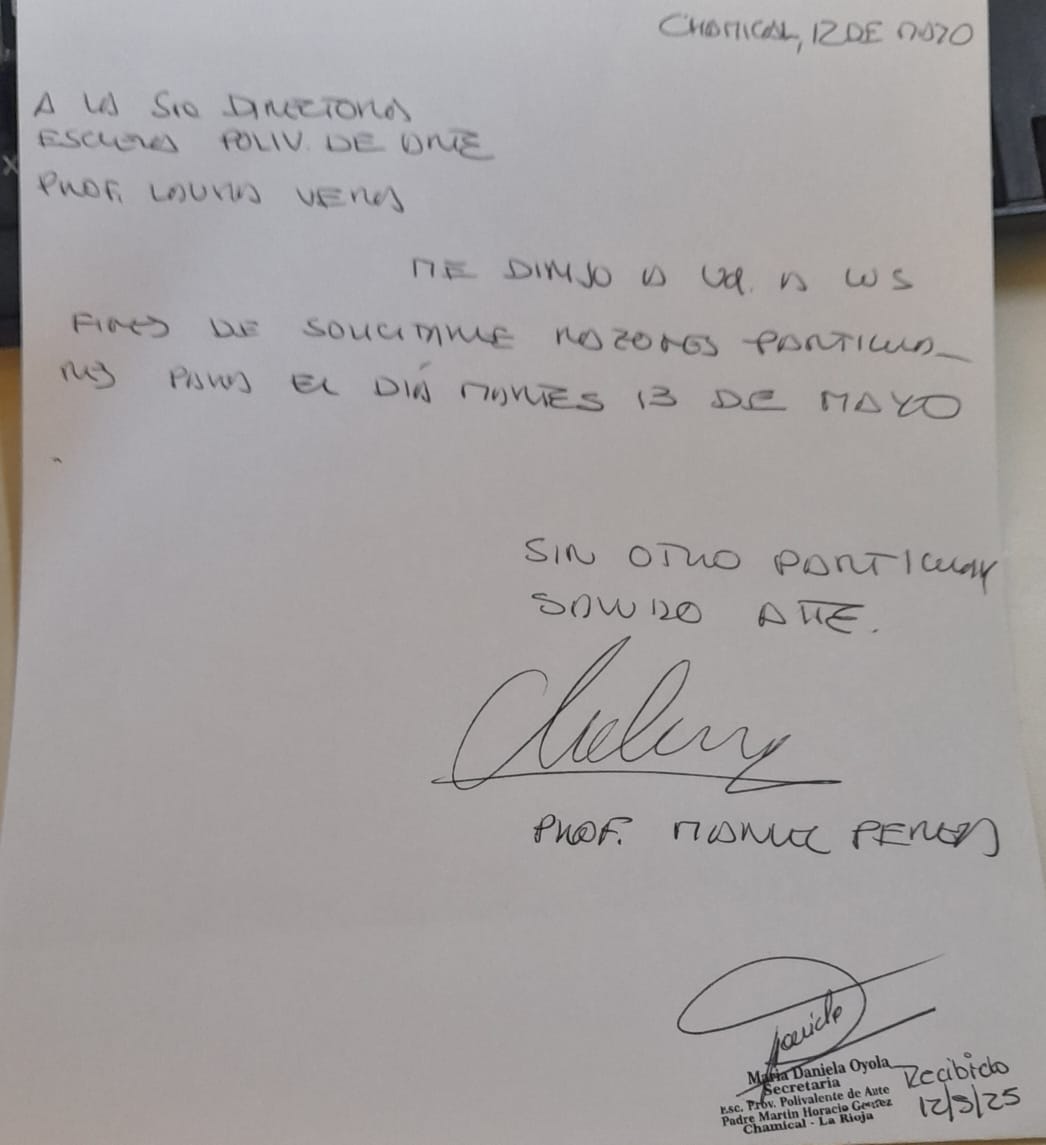 CHAMICAL, 12 DE MAYO
A LA SRA DIRECTORA
ESCUELA POLIV. DE ARTE
PROF. LAURA VERA
ME DIRIJO A Ud. A LOS
FINES DE SOLICITARLE RAZONES PARTICULA_
RES PARA EL DÍA MARTES 13 DE MAYO
SIN OTRO PARTICULAR
SALUDO ATTE.
PROF. MANUEL
Maria Daniela Oyola
Secretaria
Esc. Prov. Polivalente de Arte
Padre Martin Horacio
Chamical - La Rioja
Recibido
12/5/25